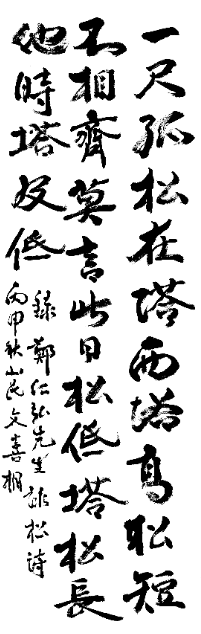 一尺孤松在塔西塔高松短
不相齊莫言此日松低塔松長
他時塔反低
錄鄭仁弘先生詠松詩
丙申秋山民文喜